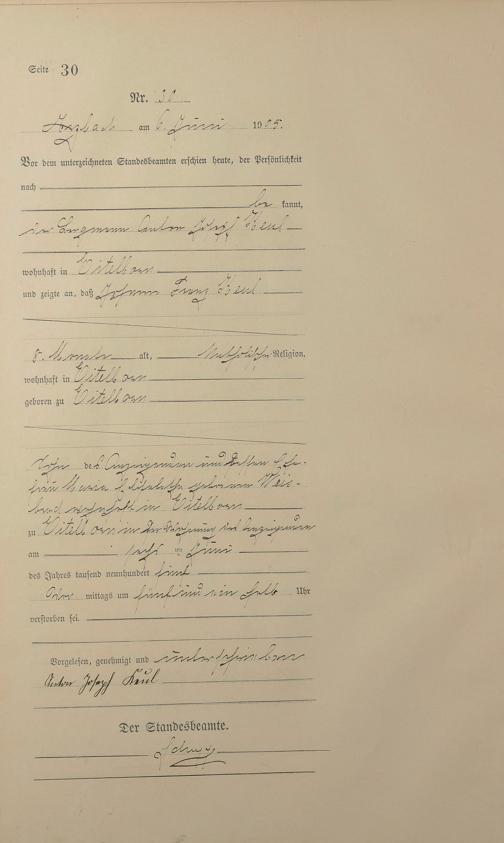 Seite 30
Nr. 30
am 6. Juni 1905.
Vor dem unterzeichneten Standesbeamten erschien heute, der Persönlichkeit
nach
be kannt,
der Bergmann Anton Josef Keul
wohnhaft in Eitelborn
und zeigte an, daß Johann Franz Keul
8 Monate alt, katholischer Religion,
wohnhaft in Eitelborn
geboren zu Eitelborn
Sohn des Anzeigenden und dessen Ehe-
frau Maria geborenen Weis-
brod wohnhaft in Eitelborn
zu Eitelborn in der Wohnung des Anzeigenden
am sechsten Juni
des Jahres tausend neunhundert fünf
Vor mittags um fünf und ein halb Uhr
verstorben sei.
Vorgelesen, genehmigt und unterschrieben
Anton Joseph Keul
Der Standesbeamte.